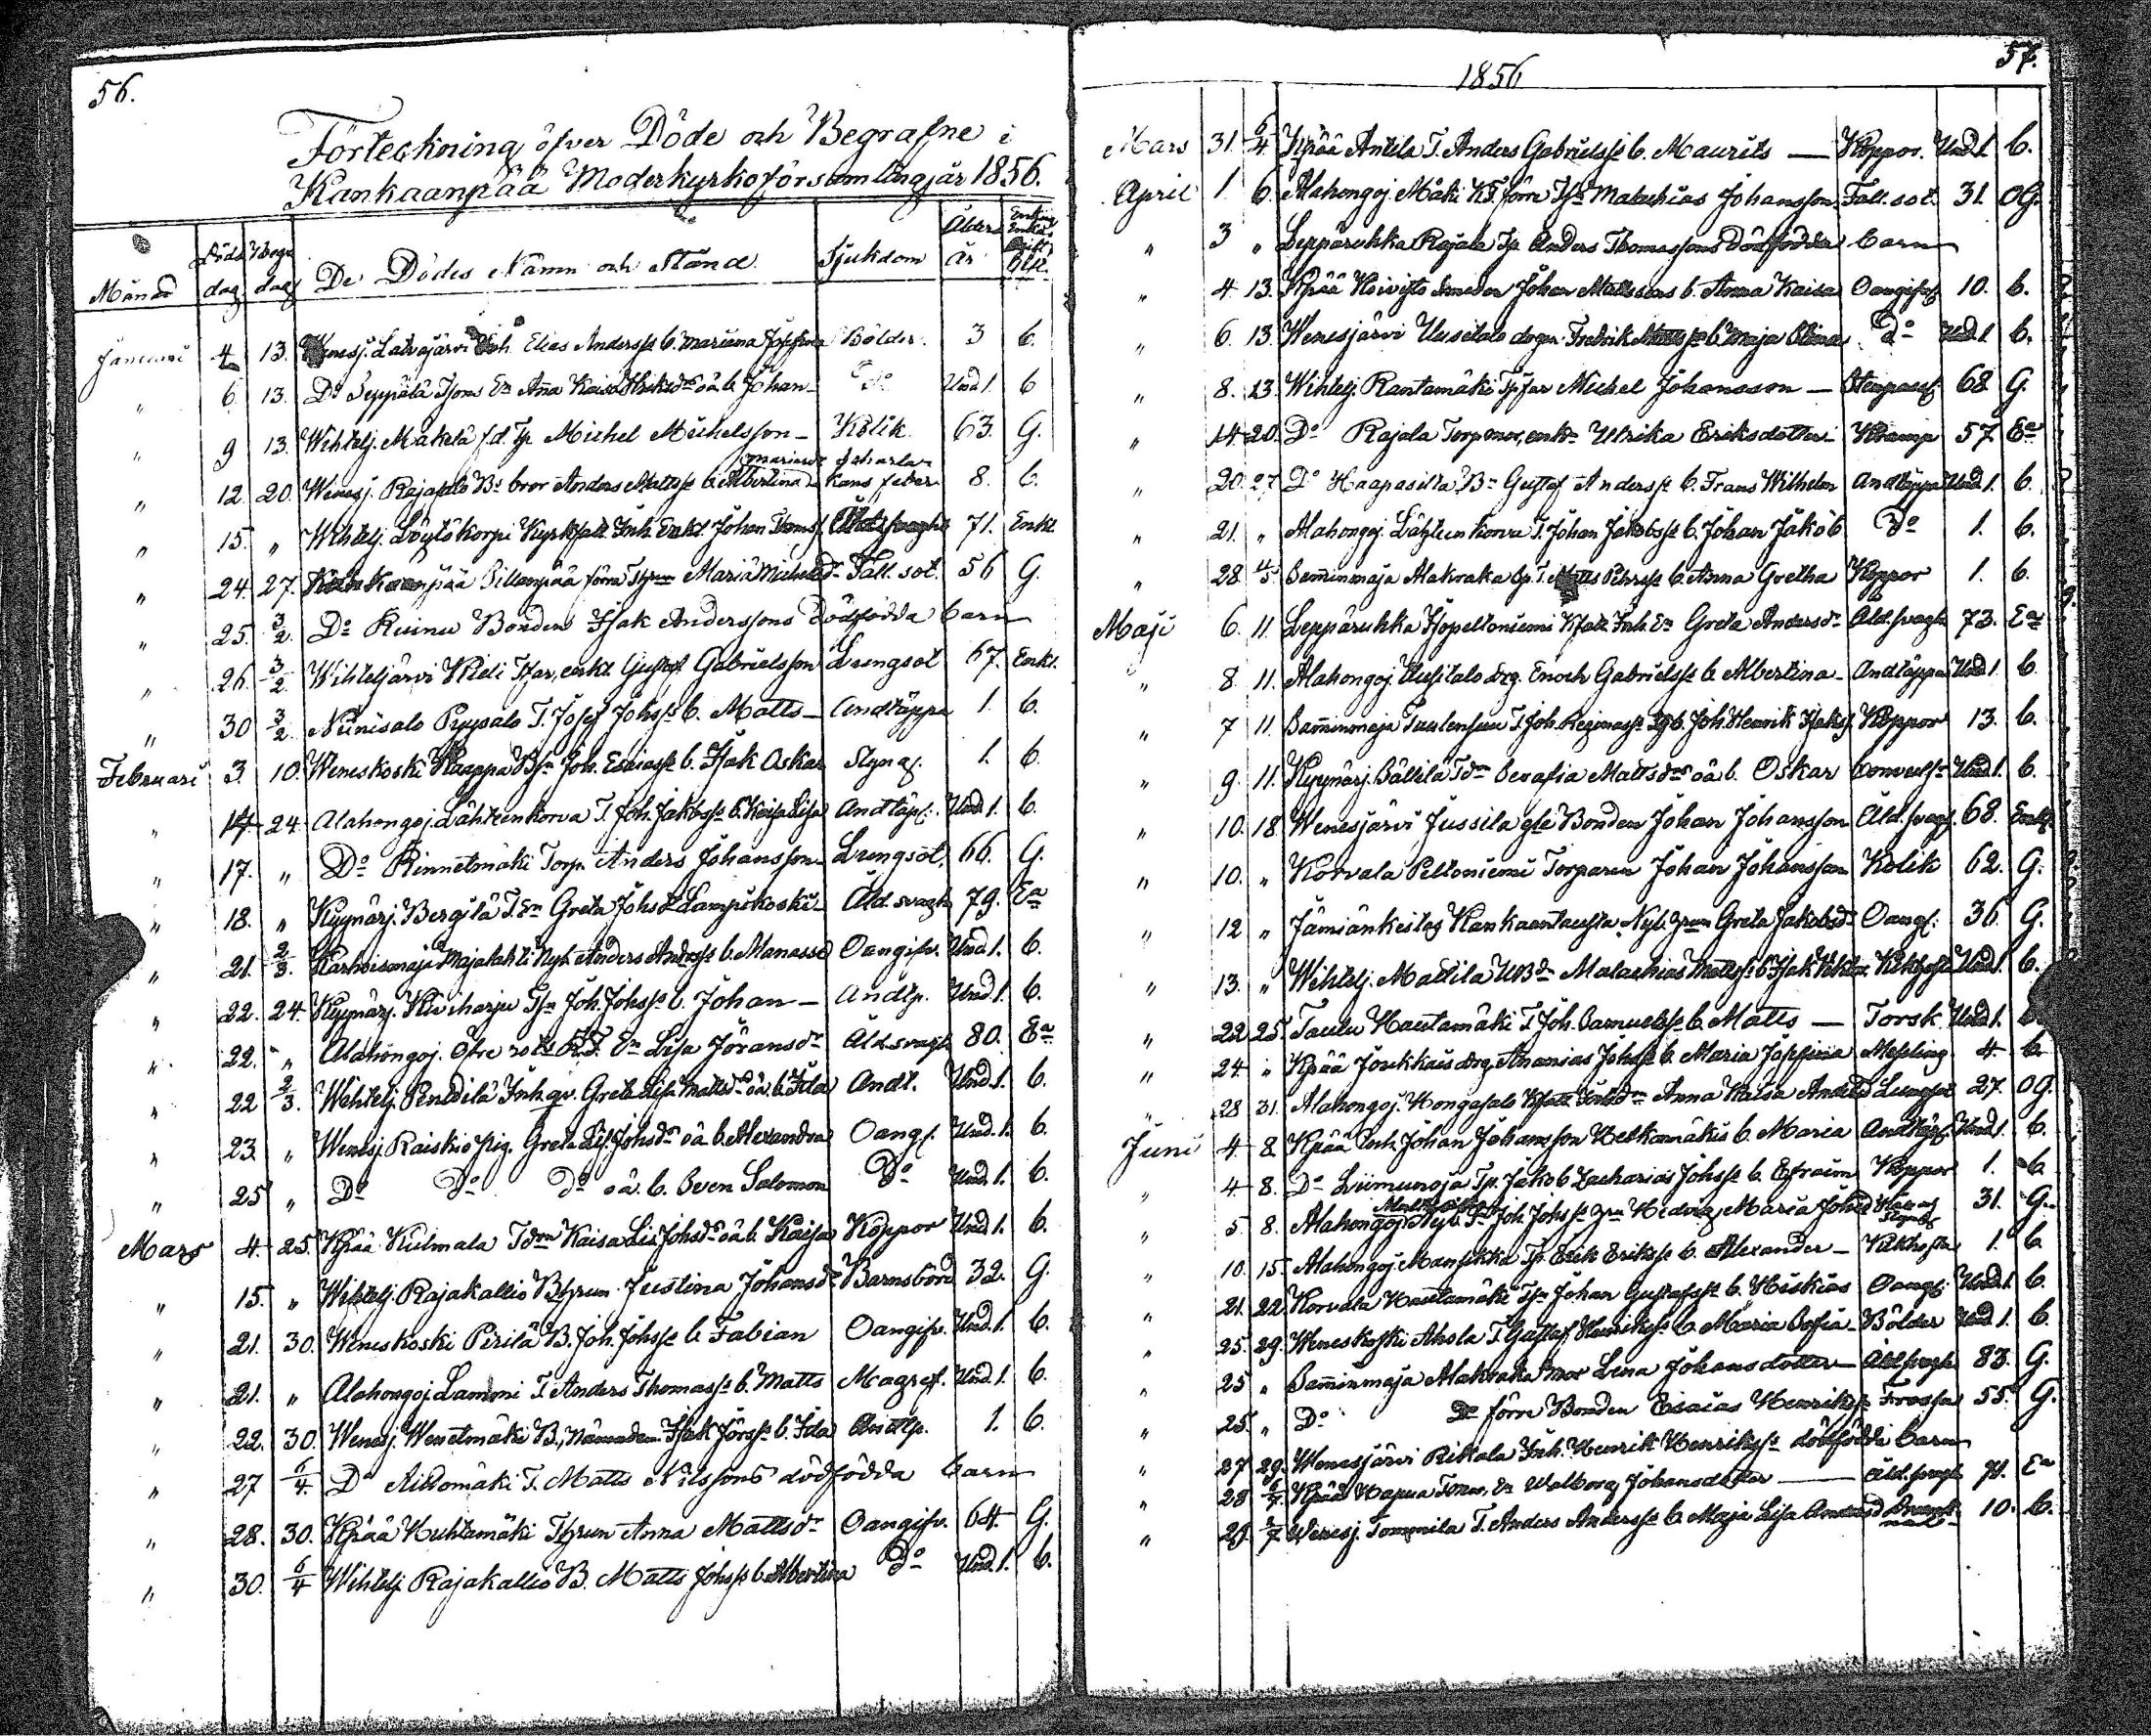 56.
Förteckning öfver Döde och Begrafne i
Kankaanpää Moderkyrkoförsamling, år 1856.
Månad Döds dag Begr. dag De Dödes Namn och Stånd Sjukdom Ålder år
Januari 4 13. Wenesj. Latvajärvi Inh. Elias Anderss: b. Mariana Josefina Bölder. 3 b.
" 6 13. Do Seppälä Do Und 1. b
" 9 13. Wihtelj. Mäkelä f.d. Tp. Michel Michelsson – Kolik. 63. G.
" 12. 20. Wenesj. Rajasalo Bs bror Anders Mattss: b. Albertina 8. b.
" 15. " Wihtelj. Löytökorpi Kyrkfatt. Inh. Enkl. Johan 71. Enkl.
" 24. 27. Pillanpää förra Maria Michelsdr Fall. sot. 56 G.
" 25. 3/2. Do Kuinu Bonden Isak Anderssons dödfödda barn
" 26. 3/2. Wihteljärvi Kieli Tfar, enkl. Gustaf Gabrielsson Lungsot 67. Enkl.
" 30 3/2 Niinisalo Pyysalo T. Josef Johss: b. Matts – Andtäppa 1 b.
Februari 3. 10. Weneskoski Kaappa Bsn Joh. Esaiass: b. Isak Oskar Slag. 1. b.
" 14 24. Alahongoj. Lähteenkorva T. Joh. Jakobss: b. Kaisa Lisa Andtäp: Und 1. b.
" 17. " Do Rinnetmäki Torp. Anders Johansson Lungsot, 66. G.
" 18. " Kyynärj. Bergilä T. En Greta Johsd Lampikoski – Åld. svagh. 79. Ea
" 21. 2/3. Karhoismaja Majalahti Nyb. Anders Anderss: b. Manasse Oangifv. Und 1. b.
" 22. 24. Kyynärj. Kiviharju Tsn Joh. Johss: b. Johan – Andtp. Und. 1. b.
" 22. " Alahongoj. Öfre rote R.F. En Lisa Jöransdr Åld.svagh. 80. Ea
" 22 2/3. Wihtelj. Penttilä Inh. qv. Greta Lisa Mattsdr oä b. Ida Andt. Und. 1. b.
" 23. " Wenesj. Raiskio pig. Greta Lis. Johsdr oä b. Alexandra Oangf. Und. 1. b.
" 25 " Do Do Do oä. b. Sven Salomon Do Und. 1. b.
Mars 4. 25. Kpää Kulmala Tdrn Kaisa Lis. Johsdr oä b. Kaisa Koppor Und 1. b.
" 15. " Wihtelj. Rajakallio Bhrun Justina Johansdr Barnsbörd 32. G.
" 21. 30. Weneskoski Pirilä B. Joh. Johss: b. Fabian Oangifv. Und. 1. b.
" 21. " Alahongoj. Lammi T. Anders Thomass: b. Matts Magref. Und. 1. b.
" 22. 30. Wenesj. Wenetmäki B., Nämndem. Isak Jörss: b. Ida Andtp. 1. b.
" 27 6/4. Do Aittomäki T. Matts Nilssons dödfödda barn
" 28. 30. Kpää Huhtamäki Thrun Anna Mattsdr Oangifv. 64. G.
" 30. 6/4 Wihtelj. Rajakallio B. Matts Johss: b. Albertina Do Und. 1. b.
57.
1856
Mars 31. 6/4. Kpää Anttila T. Anders Gabrielss: b. Maurits — Koppor. Und. 1. b.
April 1 6. Alahongoj. Mäki K.T. förra Tsn Malachias Johansson Fall. sot. 31. OG.
" 3 " Leppäruhka Rajala Tp. Anders Thomassons dödfödda barn
" 4. 13. Kpää Koivisto Smeden Johan Mattssons b. Anna Kaisa Oangifv. 10. b.
" 6. 13. Wenesjärvi Uusitalo drgn Fredrik Mattss: b. Maja Stina Do Und 1. b.
" 8. 13. Wihtelj. Rantamäki Tpfar Michel Johansson — Stenpass. 68 G.
" 14. 20. Do Rajala Torpmor, enka Ulrika Eriksdotter – Kramp 57 Ea
" 20. 27 Do Haapasilta Bn Gustaf Anderss: b. Frans Wilhelm Andtäppa Und. 1. b.
" 21. " Alahongoj. Lähteenkorva T. Johan Jakobss: b. Johan Jakob Do 1. b.
" 28. 4/5. Samminmaja Alakraka Tp. T. Matts Pehrss: b. Anna Gretha Koppor 1. b.
Maji 6. 11. Leppäruhka Isopeltoniemi Kfatt. Inh. En Greta Andersdr Åld.svagh. 73. Ea
" 8. 11. Alahongoj. Uusitalo drg. Enoch Gabrielss: b. Albertina – Andtäppa Und 1 b.
" 7 11. Samminmaja Tuulensuu Koppor 13. b.
" 9. 11. Kyynärj. Bällilä Tdrn Serafia Mattsdr oä b. Oskar Convuls: Und 1. b.
" 10. 18 Wenesjärvi Jussila gle Bonden Johan Johansson Åld. svagh. 68. Enkl.
" 10. " Korvala Peltoniemi Torparen Johan Johansson Kolik 62. G.
" 12 " Jämiänkeitag Kankaantausta Nyb. hrun Greta Jakobsdr Oangf: 36. G.
" 13. " Wihtelj. Mattila Malachias Mattss: b. Isak Wiktor. Kikhosta Und 1. b.
" 22 25. Taulu Hautamäki T. Joh. Samuelss: b. Matts — Torsk Und 1.
" 24. " Kpää Joukkais drg. Ananias Johss: b. Maria Josefina Messling 4. b.
" 28 31. Alahongoj. Hongasalo Kfatt. Anna Kaisa Lungsot 27. OG.
Juni 4 8. Kpää Inh. Johan Johansson Ketkomäkis b. Maria Andtäp. Und 1. b.
" 4. 8. Do Liimunoja Tp. Jakob Zacharias Johss: b. Efraim Koppor 1. b
" 5 8. Alahongoj. Nyb. Joh. Johss: hru Hedvig Maria 31. G.
" 10. 15. Alahongoj. Mansikka Tp. Erik Erikss: b. Alexander – Kikhosta 1. b
" 21. 22 Korvala Hautamäki Tsn Johan Gustafss: b. Hiskias Oangf: Und 1. b.
" 25. 29. Weneskoski Ahola T. Gustaf Henrikss: b. Maria Sofia – Bölder Und 1. b.
" 25 " Samminmaja Alakraka Mor Lena Johansdotter — Åld.svagh. 83. G.
" 25. " Do Do förre Bonden Esaias Henrikss: Frossa 55. G.
" 27 29. Wenesjärvi Rikkala Inh. Henrik Henrikss: dödfödda barn
" 28 6/7. Kpää Hapua Tmor, En Walborg Johansdotter — Åld.svagh. 71. Ea
" 29. 2/7 Wenesj. Tommila T. Anders Anderss: b. Maja Lisa 10. b.